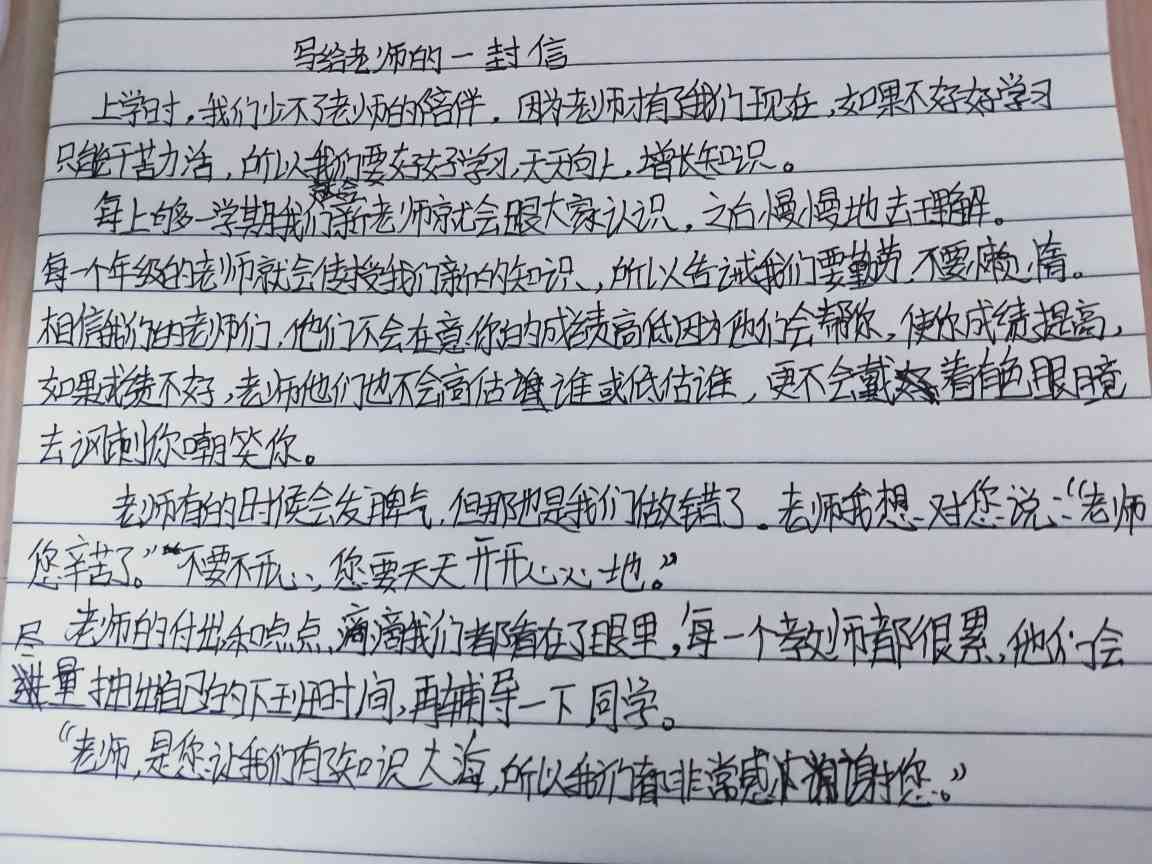 写给老师的一封信
上学时，我们少不了老师的陪伴。因为老师才有了我们现在，如果不好好学习
只能干苦力活，所以我们要好好学习，天天向上，增长知识。
每上的一学期我们新老师就会跟大家认识，之后慢慢地去理解。
每一个年级的老师就会传授我们新的知识，所以告诫我们要勤劳，不要懒惰。
相信我们的老师们，他们不会在意你的成绩高低因为他们会帮你，使你成绩提高，
如果成绩不好，老师他们也不会高估谁或低估谁，更不会戴着有色眼镜
去讽刺你嘲笑你。
老师有的时候会发脾气，但那也是我们做错了。老师我想对您说：“老师
您辛苦了。”“不要不开心，您要天天开开心心地。”
老师的付出和点点滴滴我们都看在了眼里，每一个教师都很累，他们会
尽量抽出自己的下班时间，再辅导一下同学。
“老师，是您让我们有了知识大海，所以我们都非常感谢您。”